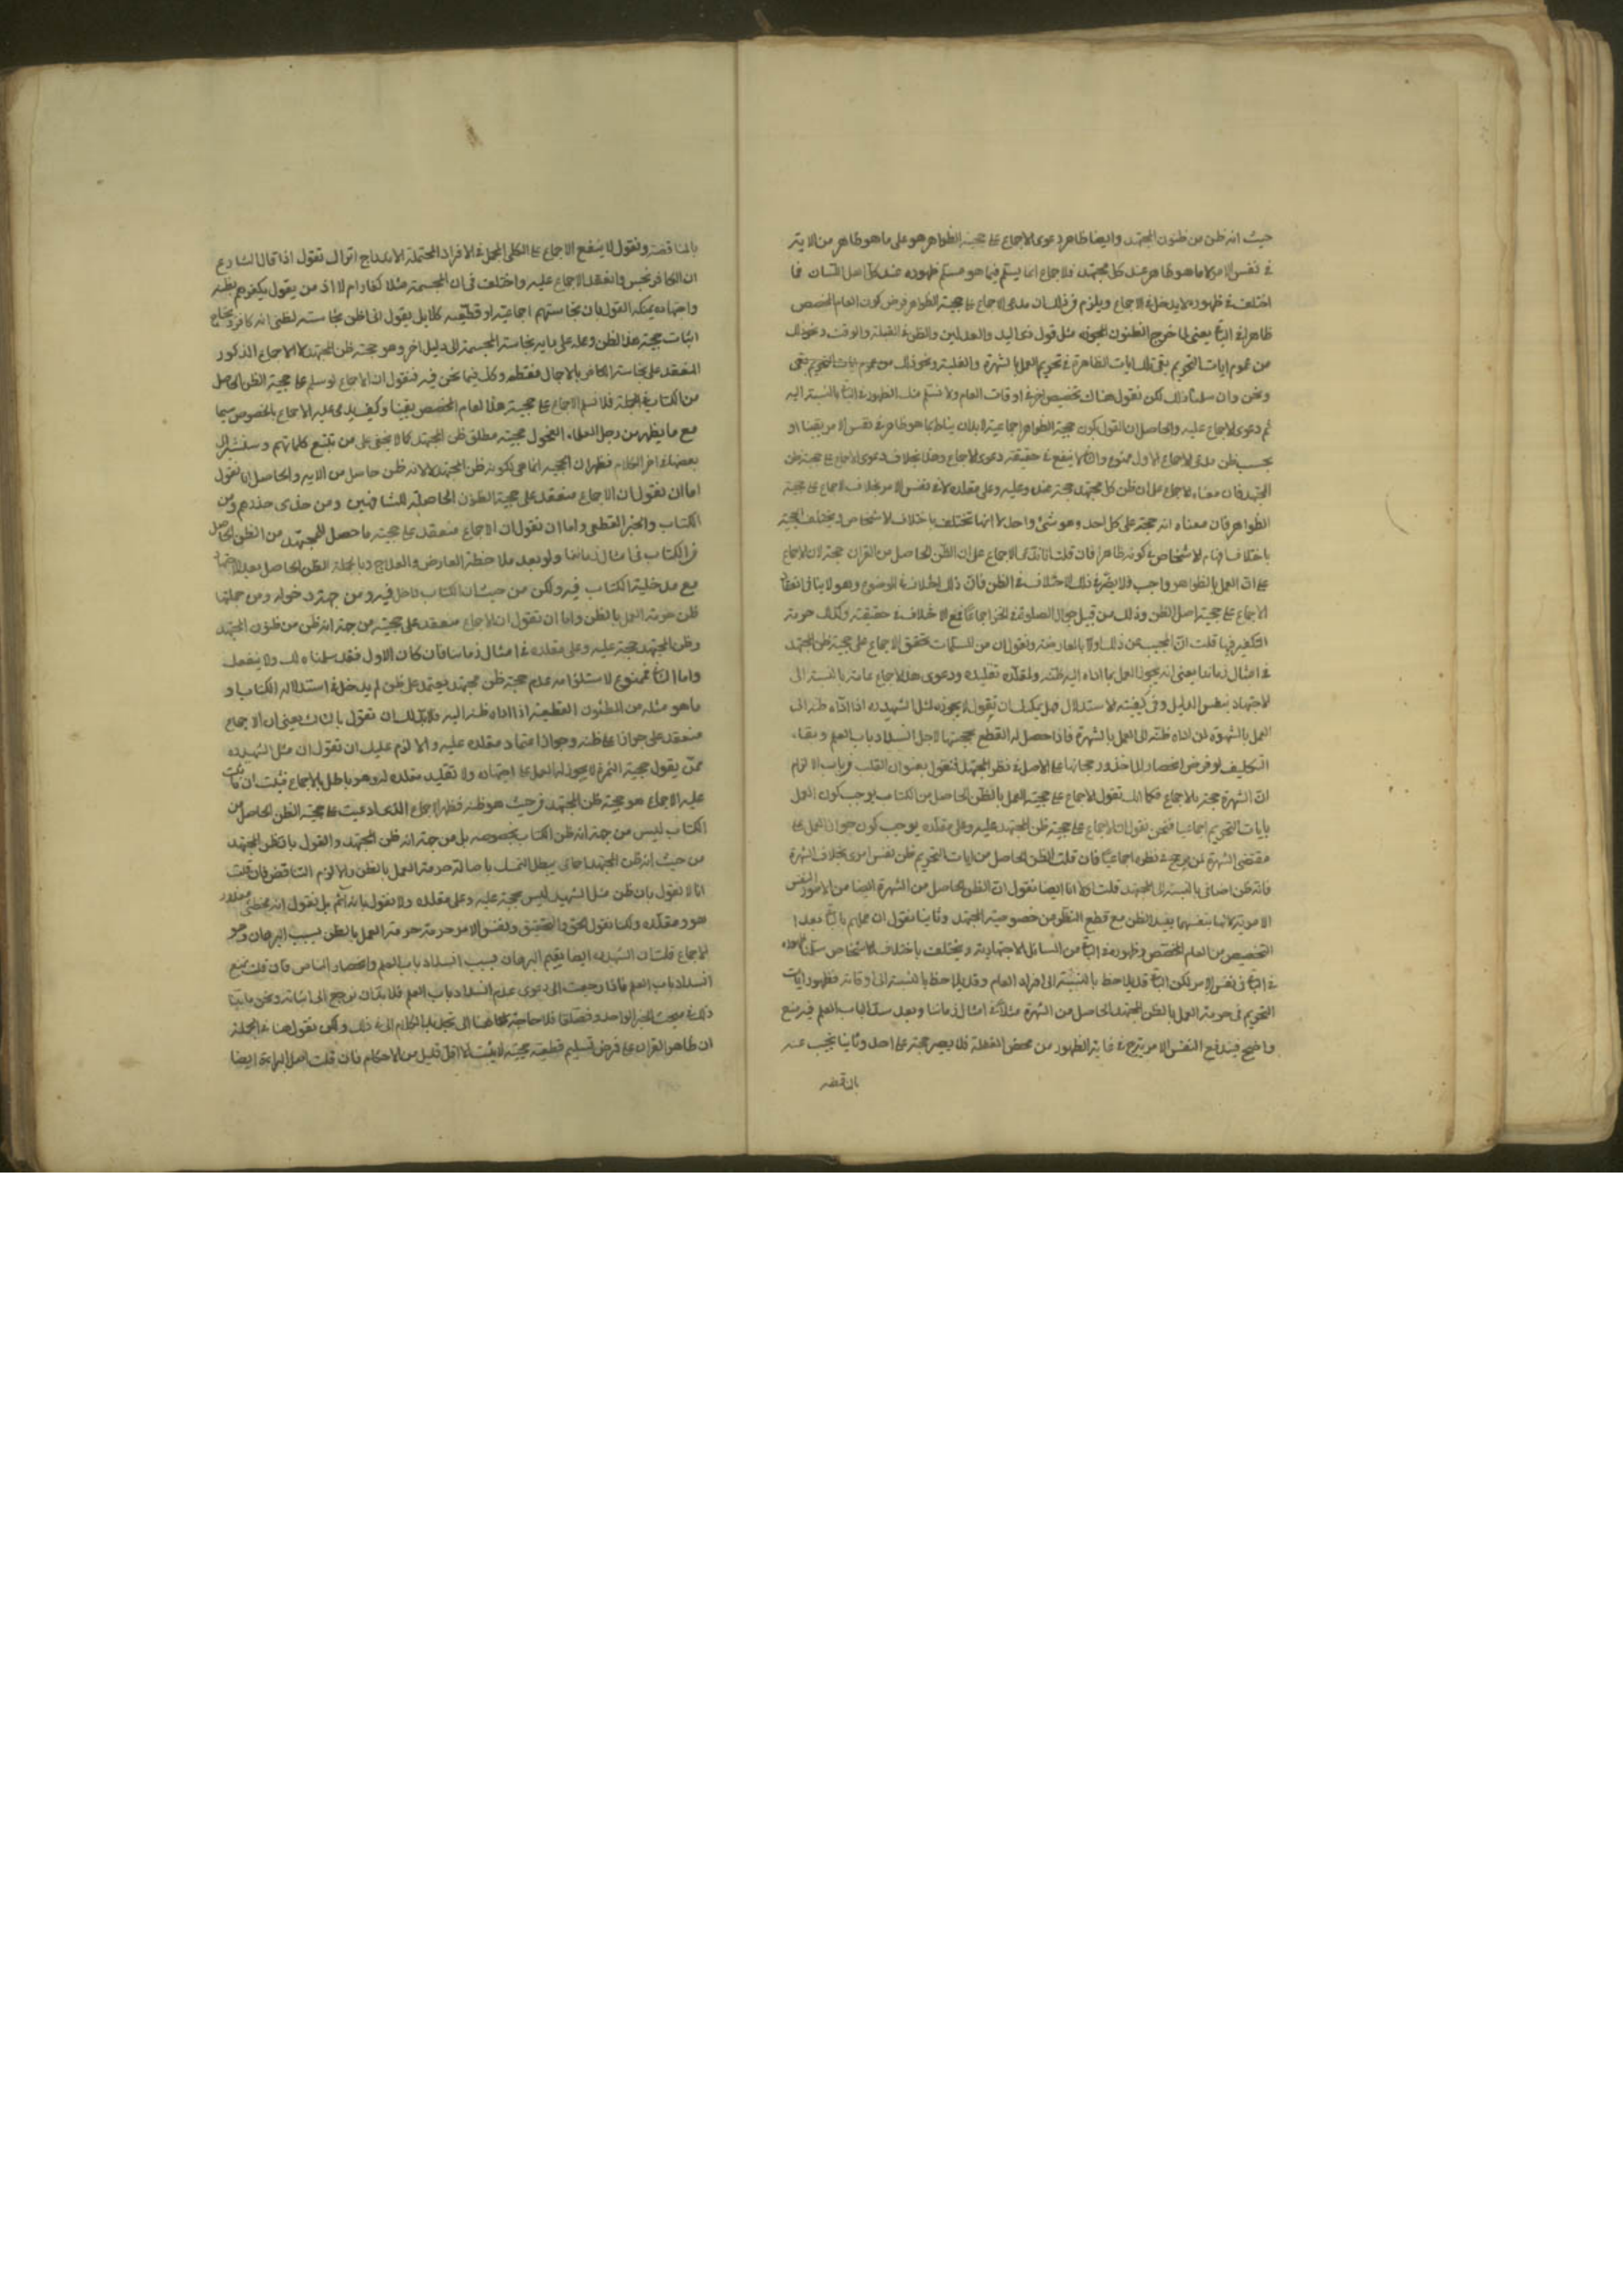 حيث انه ظن من ظنون المجتهد وايضا ظاهر دعوى الاجماع على حجية الظواهر هو على ما هو ظاهر من الاية
في نفس الامر لا ما هو ظاهر عند كل مجتهد فلا جماع انما يستم فيما هو مسلم ظهوره عند كل اهل اللسان فما
اختلف في ظهوره لا يدخل في الاجماع ويلزم من ذلك ان مدعى الاجماع على حجية الظواهر فرض كون العام المخصص
ظاهرا في الباقي يعني لما خرج الظنون المجوزه مثل قول ذي اليد والعدلين والظن في القبلة والوقت ونحو ذلك
من عموم ايات التحريم بقي تلك الايات الظاهرة في تحريم العمل بالشهرة والغلبة ونحو ذلك من عموم ايات التحريم بقي
ونحن وان سلمنا ذلك لكن نقول هناك تخصيص اخر في اوقات العام ولا نسلم منك الظهور في الباقي بالنسبة اليه
ثم دعوى الاجماع عليه والحاصل ان القول بكون حجية الظواهر اجماعية لا بد ان يناط بما هو ظاهر في نفس الامر يقينا او
بحسب ظن مدعى الاجماع الاول ممنوع والثاني لا ينفع في حقيقته دعوى الاجماع وهذا بخلاف دعوى الاجماع على حجية ظن
المجتهد فان معناه الاجماع على ان ظن كل مجتهد حجة عنده وعليه وعلى مقلده لا في نفس الامر بخلاف الاجماع على حجية
الظواهر فان معناه انه حجة على كل احد وهو شئ واحد لا انها تختلف باختلاف الاشخاص ويختلف الحجية
باختلاف افهام الاشخاص في كونه ظاهرا فان قلت انا ندعي الاجماع على ان الظن الحاصل من القران حجة لان الاجماع
على ان العمل بالظواهر واجب فلا يضر في ذلك الاختلاف في الظن فان ذلك اختلاف في الموضوع وهو لا ينافي انعقاد
الاجماع على حجية اصل الظن وذلك من قبيل جواز الصلوة في الخز اجماعا مع الاختلاف في حقيقته وكذلك حرمة
التكفير فيها قلت انا نجيب عن ذلك اولا بالمعارضة ونقول ان من المسلمات تحقق الاجماع على حجية ظن المجتهد
في امثال زماننا يعني انه يجوز العمل بما اداه اليه ظنه ولمقلده تقليده ودعوى هذا الاجماع عامة بالنسبة الى
الاجتهاد بنفس الدليل وفي كيفية الاستدلال فهل يمكنك ان يقول لا يجوز لمثل الشهيد ره اذا اداه ظنه الى
العمل بالشهرة لمن اداه ظنه الى العمل بالشهرة فاذا حصل له القطع بحجيتها لاجل انسداد باب العلم وبقاء
التكليف لو فرض انحصار الماخذ ورجحانها على الاصل في نظر المجتهد فنقول بعنوان القلب من باب الالزام
ان الشهرة حجة بالاجماع فكما انك تقول الاجماع على حجية العمل بالظن الحاصل من الكتاب يوجب كون العمل
بايات التحريم اجماعيا فنحن نقول ان الاجماع على حجية ظن المجتهد عليه وعلى مقلده يوجب كون جواز العمل على
مقتضى الشهرة لمن يرجح في نظره اجماعيا فان قلت الظن الحاصل من ايات التحريم ظن نفس امري بخلاف الشهرة
فانه ظن اضافي بالنسبة الى المجتهد قلت اولا انا ايضا نقول ان الظن الحاصل من الشهرة ايضا من الامور النفس
الامرية لانها بنفسها يفيد الظن مع قطع النظر عن خصوصية المجتهد وثانيا نقول ان علمهم بالباقي بعد
التخصيص من العام المخصص وظهوره في الباقي من المسائل الاجتهادية ويختلف باختلاف الاشخاص سلمنا
في الباقي في نفس الامر لكن الباقي قد يلاحظ بالنسبة الى افراد العام وقد يلاحظ بالنسبة الى اوقاته فظهور ايات
التحريم في حرمة العمل بالظن للمجتهد الحاصل من الشهرة مثلا في امثال زماننا وبعد سد الباب العلم فيه منع
واضح فيندفع النفس الامرية في غاية الظهور من محض الغفلة فلا يصير حجة على احد وثانيا نجيب عنه
بالمناقضه
بالمناقضة ونقول لا ينفع الاجماع على الكلي المجمل في الافراد المحتملة الاندراج اترال تقول اذا قال الشارع
ان الكافر نجس وانعقد الاجماع عليه واختلف في ان المجسمة مثلا كفار ام لا اذ من يقول بكفرهم بظنه
واجتهاده يمكنه القول بان نجاستهم اجماعية او قطعية كلا بل يقول اني اظن نجاسته لظني انه كافر ويحتاج
اثبات حجية هذا الظن وعمله على ما به نجاسة المجسمة الى دليل اخر وهو حجية ظن المجتهد لا الاجماع المذكور
المنعقد على نجاسة الكافر بالاجمال فقط وكذلك فيما نحن فيه فنقول ان الاجماع لو سلم على حجية الظن الحاصل
من الكتاب في الجملة فلا نسلم الاجماع على حجية هذا العام المخصص يقينا وكيف يدعى عليه الاجماع بالخصوص سيما
مع ما يظهر من رجل العلماء الفحول بحجية مطلق ظن المجتهد كما لا يخفى على من تتبع كلماتهم وسنشير الى
بعضها في اخر الكلام فظهر ان الحجية انما هي لكونه ظن المجتهد لا لانه ظن حاصل من الاية والحاصل انا نقول
اما ان نقول ان الاجماع منعقد على حجية الظنون الحاصلة للمشافهين ومن حذى حذوهم ومن
الكتاب والخبر القطعي واما ان نقول ان الاجماع منعقد على حجية ما حصل للمجتهد من الظن الحاصل
من الكتاب في امثال زماننا ولو بعد ملاحظة المعارض والعلاج وبالجملة الظن الحاصل بعد الاجتهاد
مع مدخلية الكتاب فيه ولكن من حيث ان الكتاب داخل فيه ومن جهة دخوله ومن جملتها
ظن حرمة العمل بالظن واما ان نقول ان الاجماع منعقد على حجيته من جهة انه ظن من ظنون المجتهد
وظن المجتهد حجة عليه وعلى مقلده في امثال زماننا فان كان الاول فقد سلمناه لك ولا ينفعك
واما الثاني فممنوع لاستلزامه عدم حجية ظن مجتهد يعتمد على ظن لم يدخل في استدلاله الكتاب او
ما هو مثله من الظنون القطعية اذا اداه ظنه اليه فلابد لك ان تقول بالثالث يعني ان الاجماع
منعقد على جواز عمله على ظنه وجواز اعتماد مقلده عليه والا لزم عليك ان تقول ان مثل الشهيد ره
ممن يقول بحجية الشهرة لا يجوز له العمل على اجتهاده ولا تقليد مقلده له وهو باطل بالاجماع فثبت ان ما ثبت
عليه الاجماع هو حجية ظن المجتهد من حيث هو ظنه فظهر الاجماع الذى ادعيت على حجية الظن الحاصل من
الكتاب ليس من جهة انه ظن الكتاب بخصوصه بل من جهة انه ظن المجتهد والقول بان ظن المجتهد
من حيث انه ظن المجتهد اجماعي يبطل التمسك باصالة حرمة العمل بالظن والا لزم التناقض فان قلت
انا لا نقول بان ظن مثل الشهيد ليس حجة عليه وعلى مقلده ولا نقول بانه آثم بل نقول انه مخطئ معذور
هو ومقلده ولكنا نقول الحق والتحقيق ونفس الامر حرمة حرمة العمل بالظن بسبب البرهان وهو
الاجماع قلت ان الشهيد ره ايضا يقيم البرهان بسبب انسداد باب العلم وانحصار المناص فان قلت نمنع
انسداد باب العلم فاذا رجعت الى دعوى عدم انسداد باب العلم فلا بد ان نرجع الى اثباته ونحن ما بينا
ذلك في مبحث الخبر الواحد وفصلنا فلا حاجة لنا هنا الى تجديد الكلام الى في ذلك ولكن نقول هنا في الجملة
ان ظاهر القران على فرض تسليم قطعية حجيته لا يثبت الا اقل قليل من الاحكام فان قلت اصل البراءة ايضا